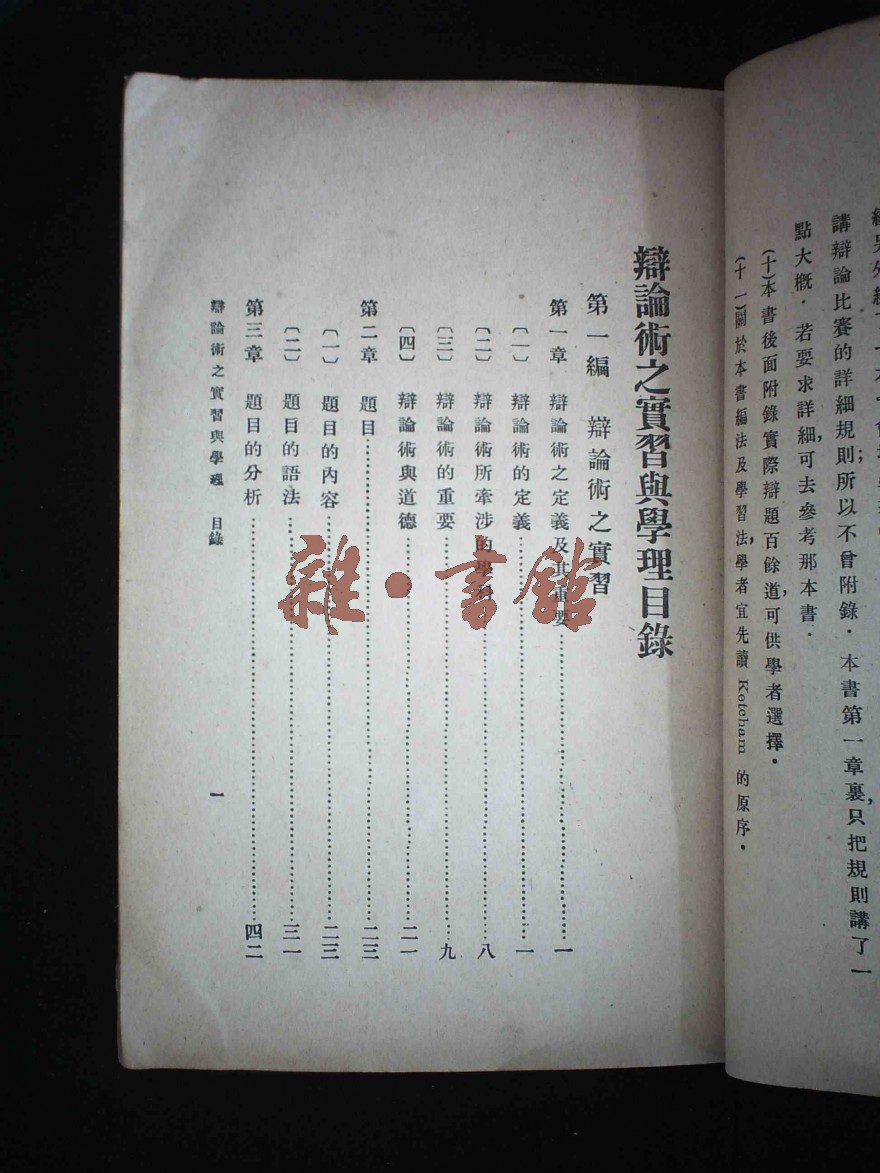 講辯論比賽的詳細規則;所以不曾附錄.本書第一章裏,只把規則講了一
點大概.若要求詳細,可去參考那本書.
(十)本書後面附錄實際辯題百餘道,可供學者選擇。
(十一)關於本書編法及學習法,學者宜先讀 Ketcham 的原序。
辯論術之實習與學理目錄
第一編 辯論術之實習
第一章 辯論術之定義及其重要……一
〔一〕 辯論術的定義……一
〔二〕 辯論術所牽涉的學科……八
〔三〕 辯論術的重要……九
〔四〕 辯論術與道德……二一
第二章 題目……二三
〔一〕 題目的內容……二三
〔二〕 題目的語法……三一
第三章 題目的分析……四二
辯論術之實習與學理 目錄
一
雜·書館